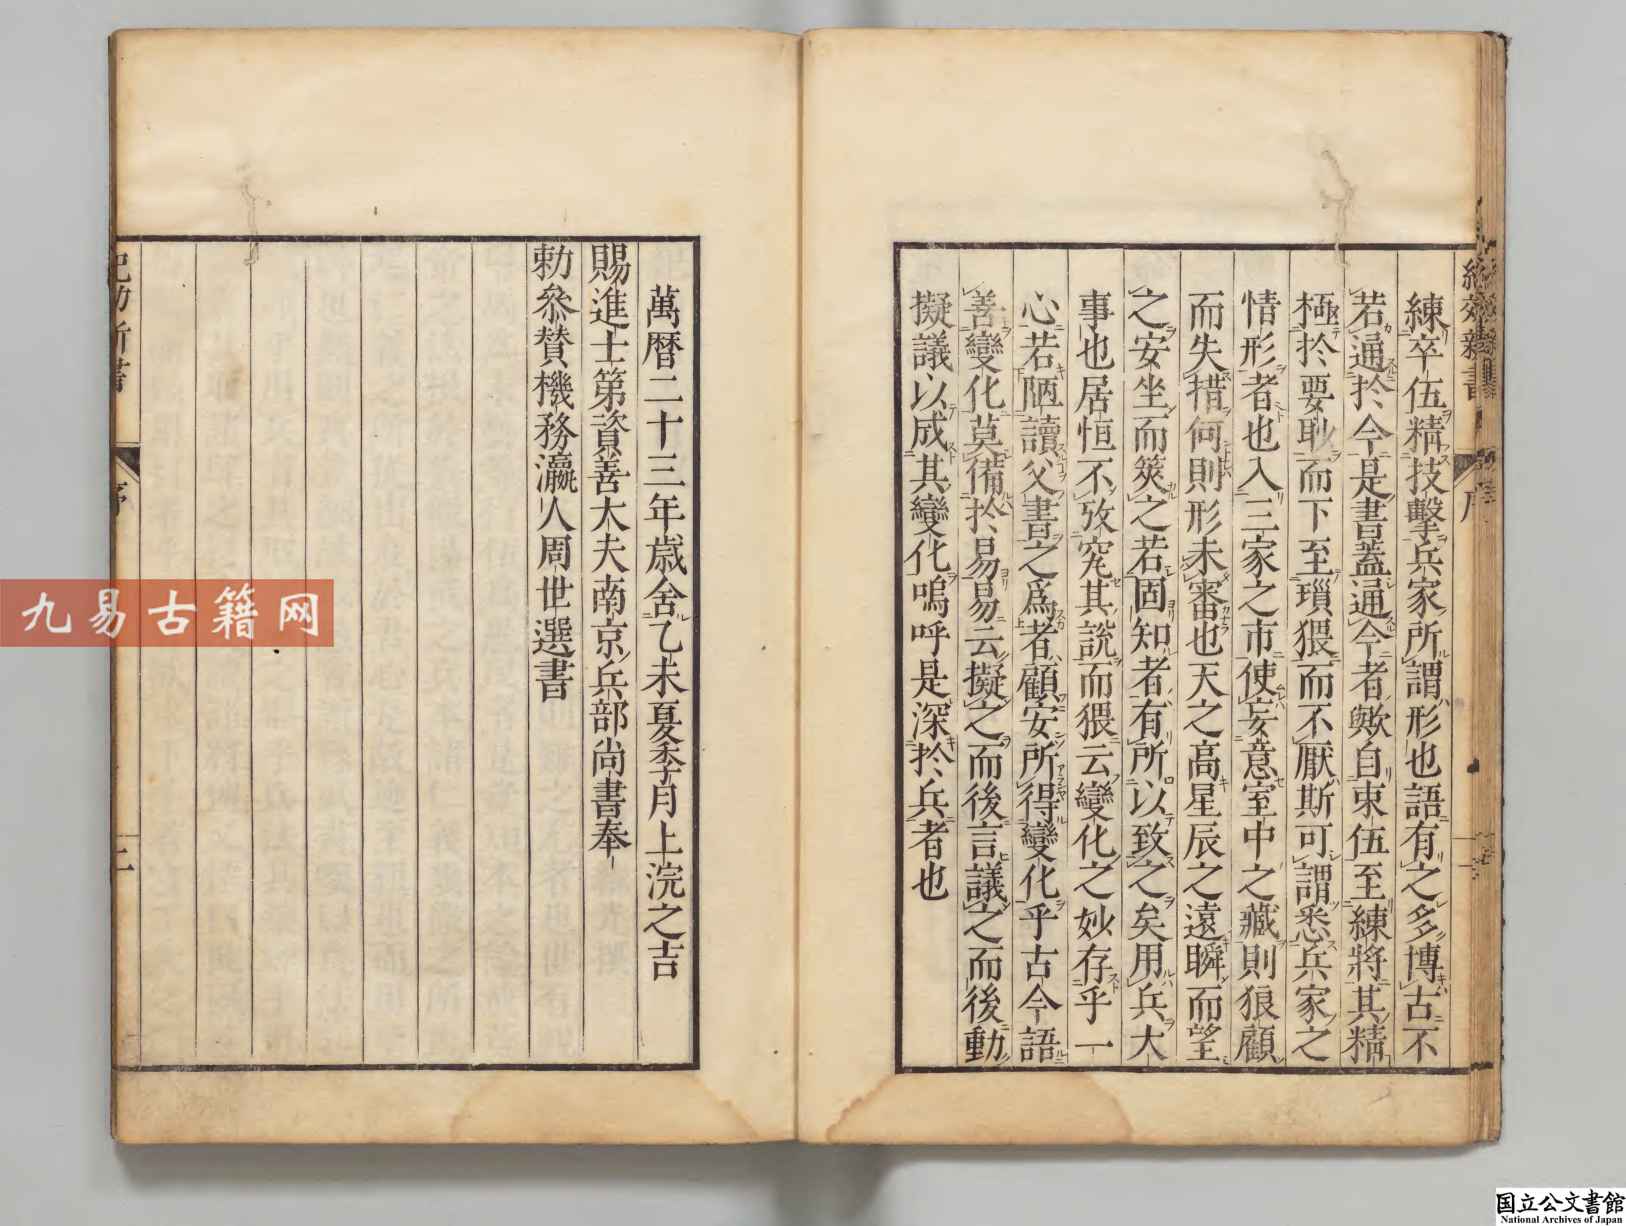 練卒伍精技擊兵家所謂形也語有之多博古不
若通於今是書蓋通今者歟自束伍至練將其精
極於要眇而下至瑣猥而不厭斯可謂悉兵家之
情形者也入三家之市使妄意室中之藏則狼顧
而失措何則形未審也天之高星辰之遠瞬而望
之安坐而筴之若固知者有所以致之矣用兵大
事也居恒不攷究其說而猥云變化之妙存乎一
心若陋讀父書之爲者顧安所得變化乎古今語
善變化莫備於易易云擬之而後言議之而後動
擬議以成其變化嗚呼是深於兵者也
萬曆二十三年歲舍乙未夏季月上浣之吉
賜進士第資善大夫南京兵部尚書奉
勅叅贊機務瀛人周世選書
紀効新書
序
二
九易古籍网
国立公文書館
National Archives of Japan